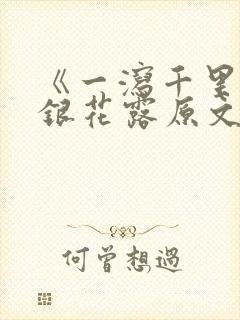 《一瀉千里
銀花露原文
何曾想過